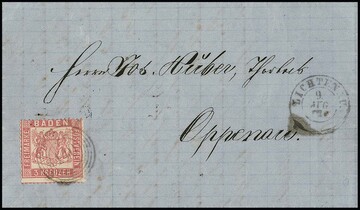 Herrn Jos. Huber,
Oppenau.
9
AUG
BADEN
FREIMARKE
3 KREUZER